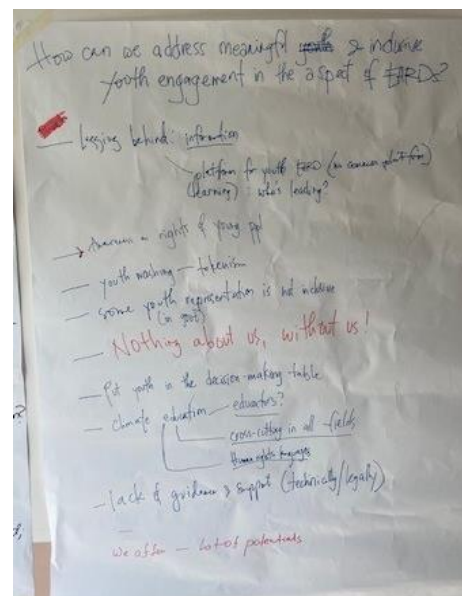 How can we address meaningful & inclusive
youth engagement in the aspect of EARDs?
— Lagging behind: information
platform for youth (no common platform)
(learning) : who's leading?
Awareness on rights of young ppl
— youth washing — tokenism
— some youth representation is not inclusive
(in govt)
— Nothing about us, without us!
— Put youth in the decision-making table
— climate education — educators?
cross-cutting in all fields
Human rights languages
— lack of guidance & support (technically/legally)
—
we offer — lot of potentials